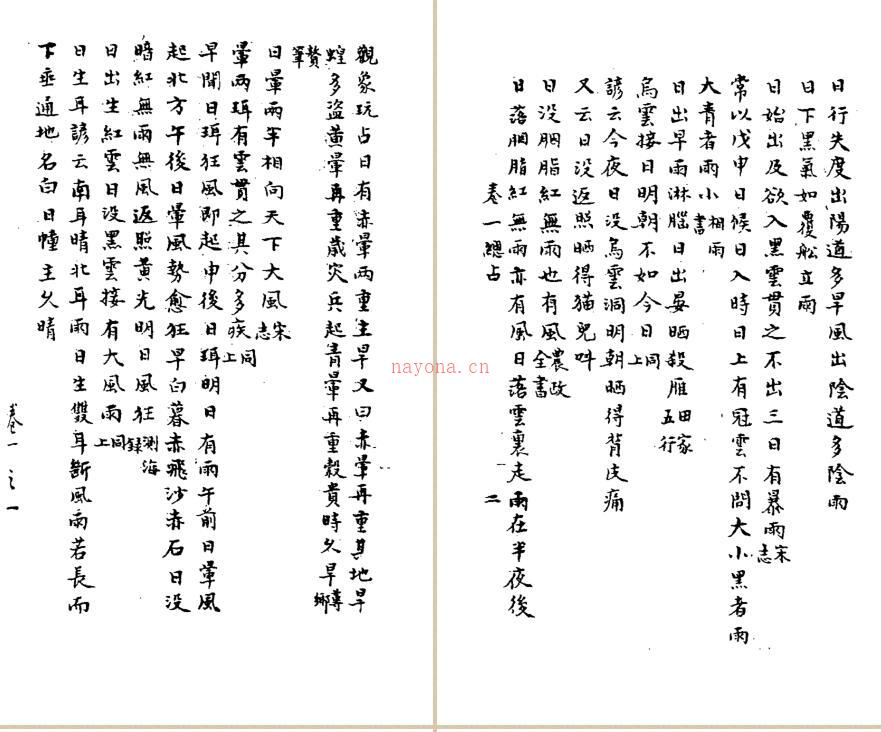 日行失度出陽道多旱風出陰道多陰雨
日下黑氣如覆船立雨
日始出及欲入黑雲貫之不出三日有暴雨宋志
常以戊申日候日入時日上有冠雲不問大小黑者雨
大青者雨小相雨書
日出早雨淋腦日出晏晒殺雁田家五行
烏雲接日明朝不如今日同上
諺云今夜日沒烏雲洞明朝晒得背皮痛
又云日沒返照晒得猫兒呌
日没胭脂紅無雨亦有風農政全書
日落胭脂紅無雨也有風日落雲裏走雨在半夜後
卷一總占
二
觀象玩占日有赤暈兩重主旱又曰赤暈再重其地旱
蝗多盜黃暈再重歲災兵起青暈再重穀貴時久旱蓴鄉
贅筆
日暈兩半相向天下大風宋志
暈兩珥有雲貫之其分多疾同上
早間日珥狂風即起申後日珥明日有雨午前日暈風
起北方午後日暈風勢愈狂早白暮赤飛沙走石日没
暗紅無雨無風返照黃光明日風狂測海錄
日出生紅雲日没黑雲接有大風雨同上
日生耳諺云南耳晴北耳雨日生雙耳斷風雨若長而
下垂通地名白日幢主久晴
卷一之一
nayona.cn